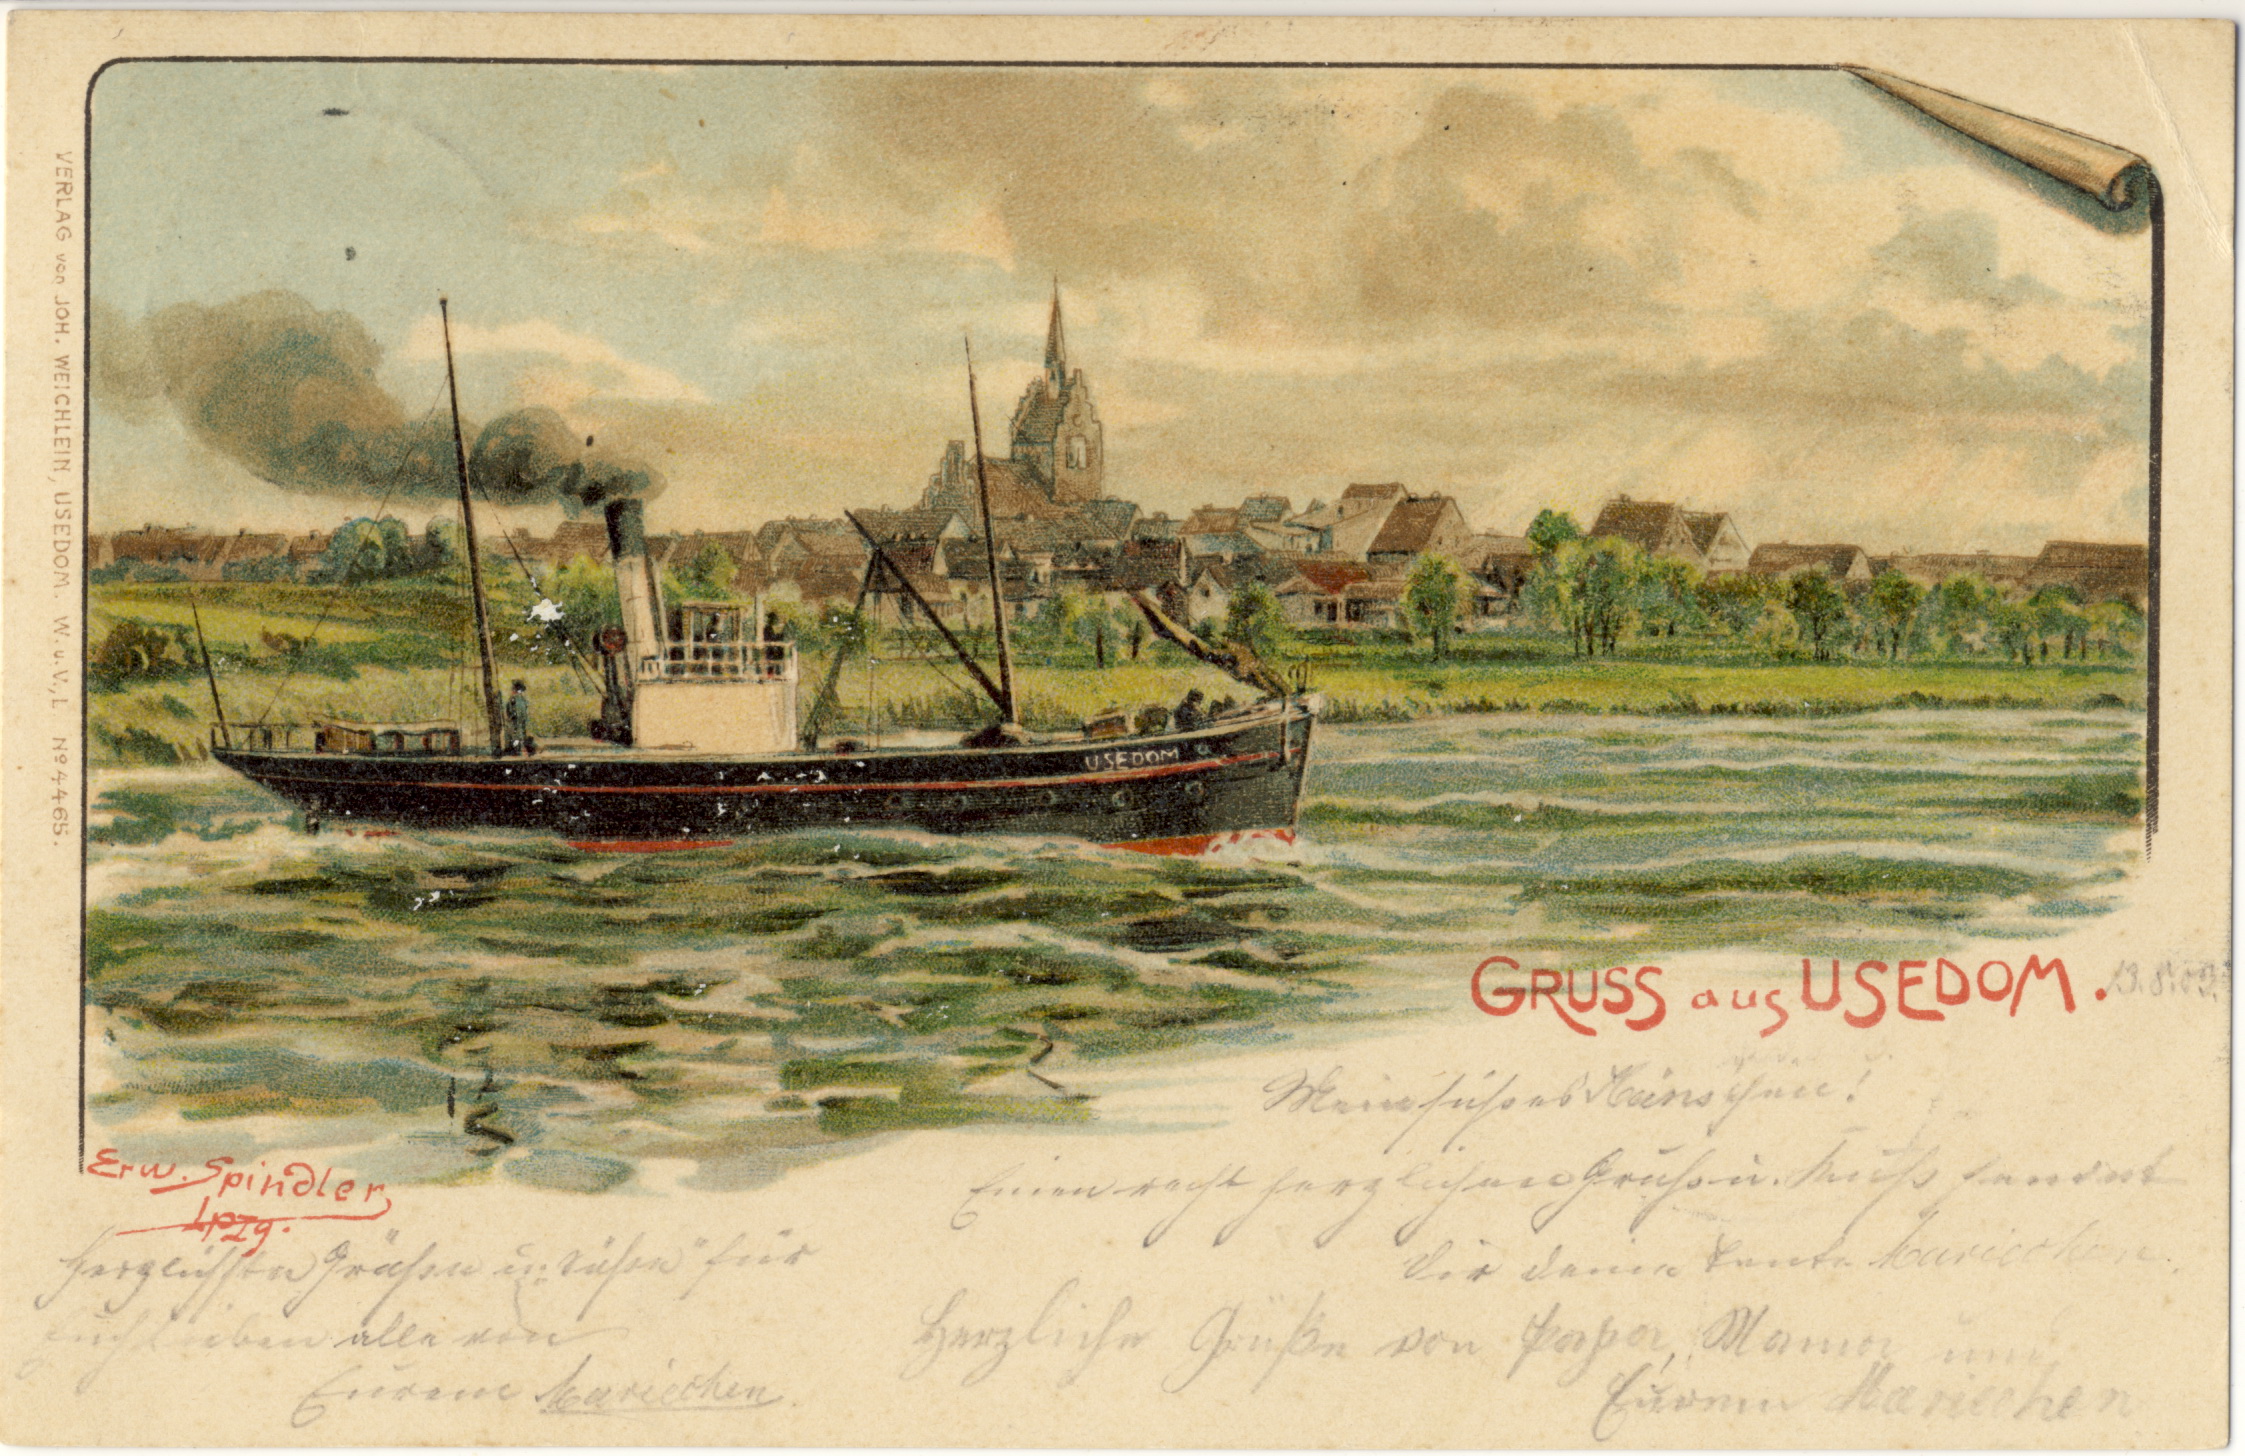 VERLAG von JOH. WEICHLEIN, USEDOM. W.u.V., L. No 4465.
USEDOM
GRUSS aus USEDOM.
13.8.03.
Mein süßes Hänschen!
Einen recht herzlichen Gruß u. Kuß sendet
Dir deine Tante Mariechen.
Erw. Spindler
Lpzg.
Herzlichsten Grüßen u. für
Euch lieben alle von
Eurem Mariechen.
Herzliche Grüße von Papa, Mama und
Eurem Mariechen